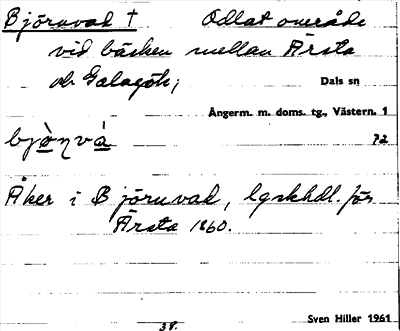 Björnvad † Odlat område
vid bäcken mellan Ärsta
och Galagök;
Dals sn
Ångerm. m. doms. tg., Västern. 1
bjònvá 72
Åker i Björnvad, lgskhdl. för
Ärsta 1860.
38.
Sven Hiller 1961